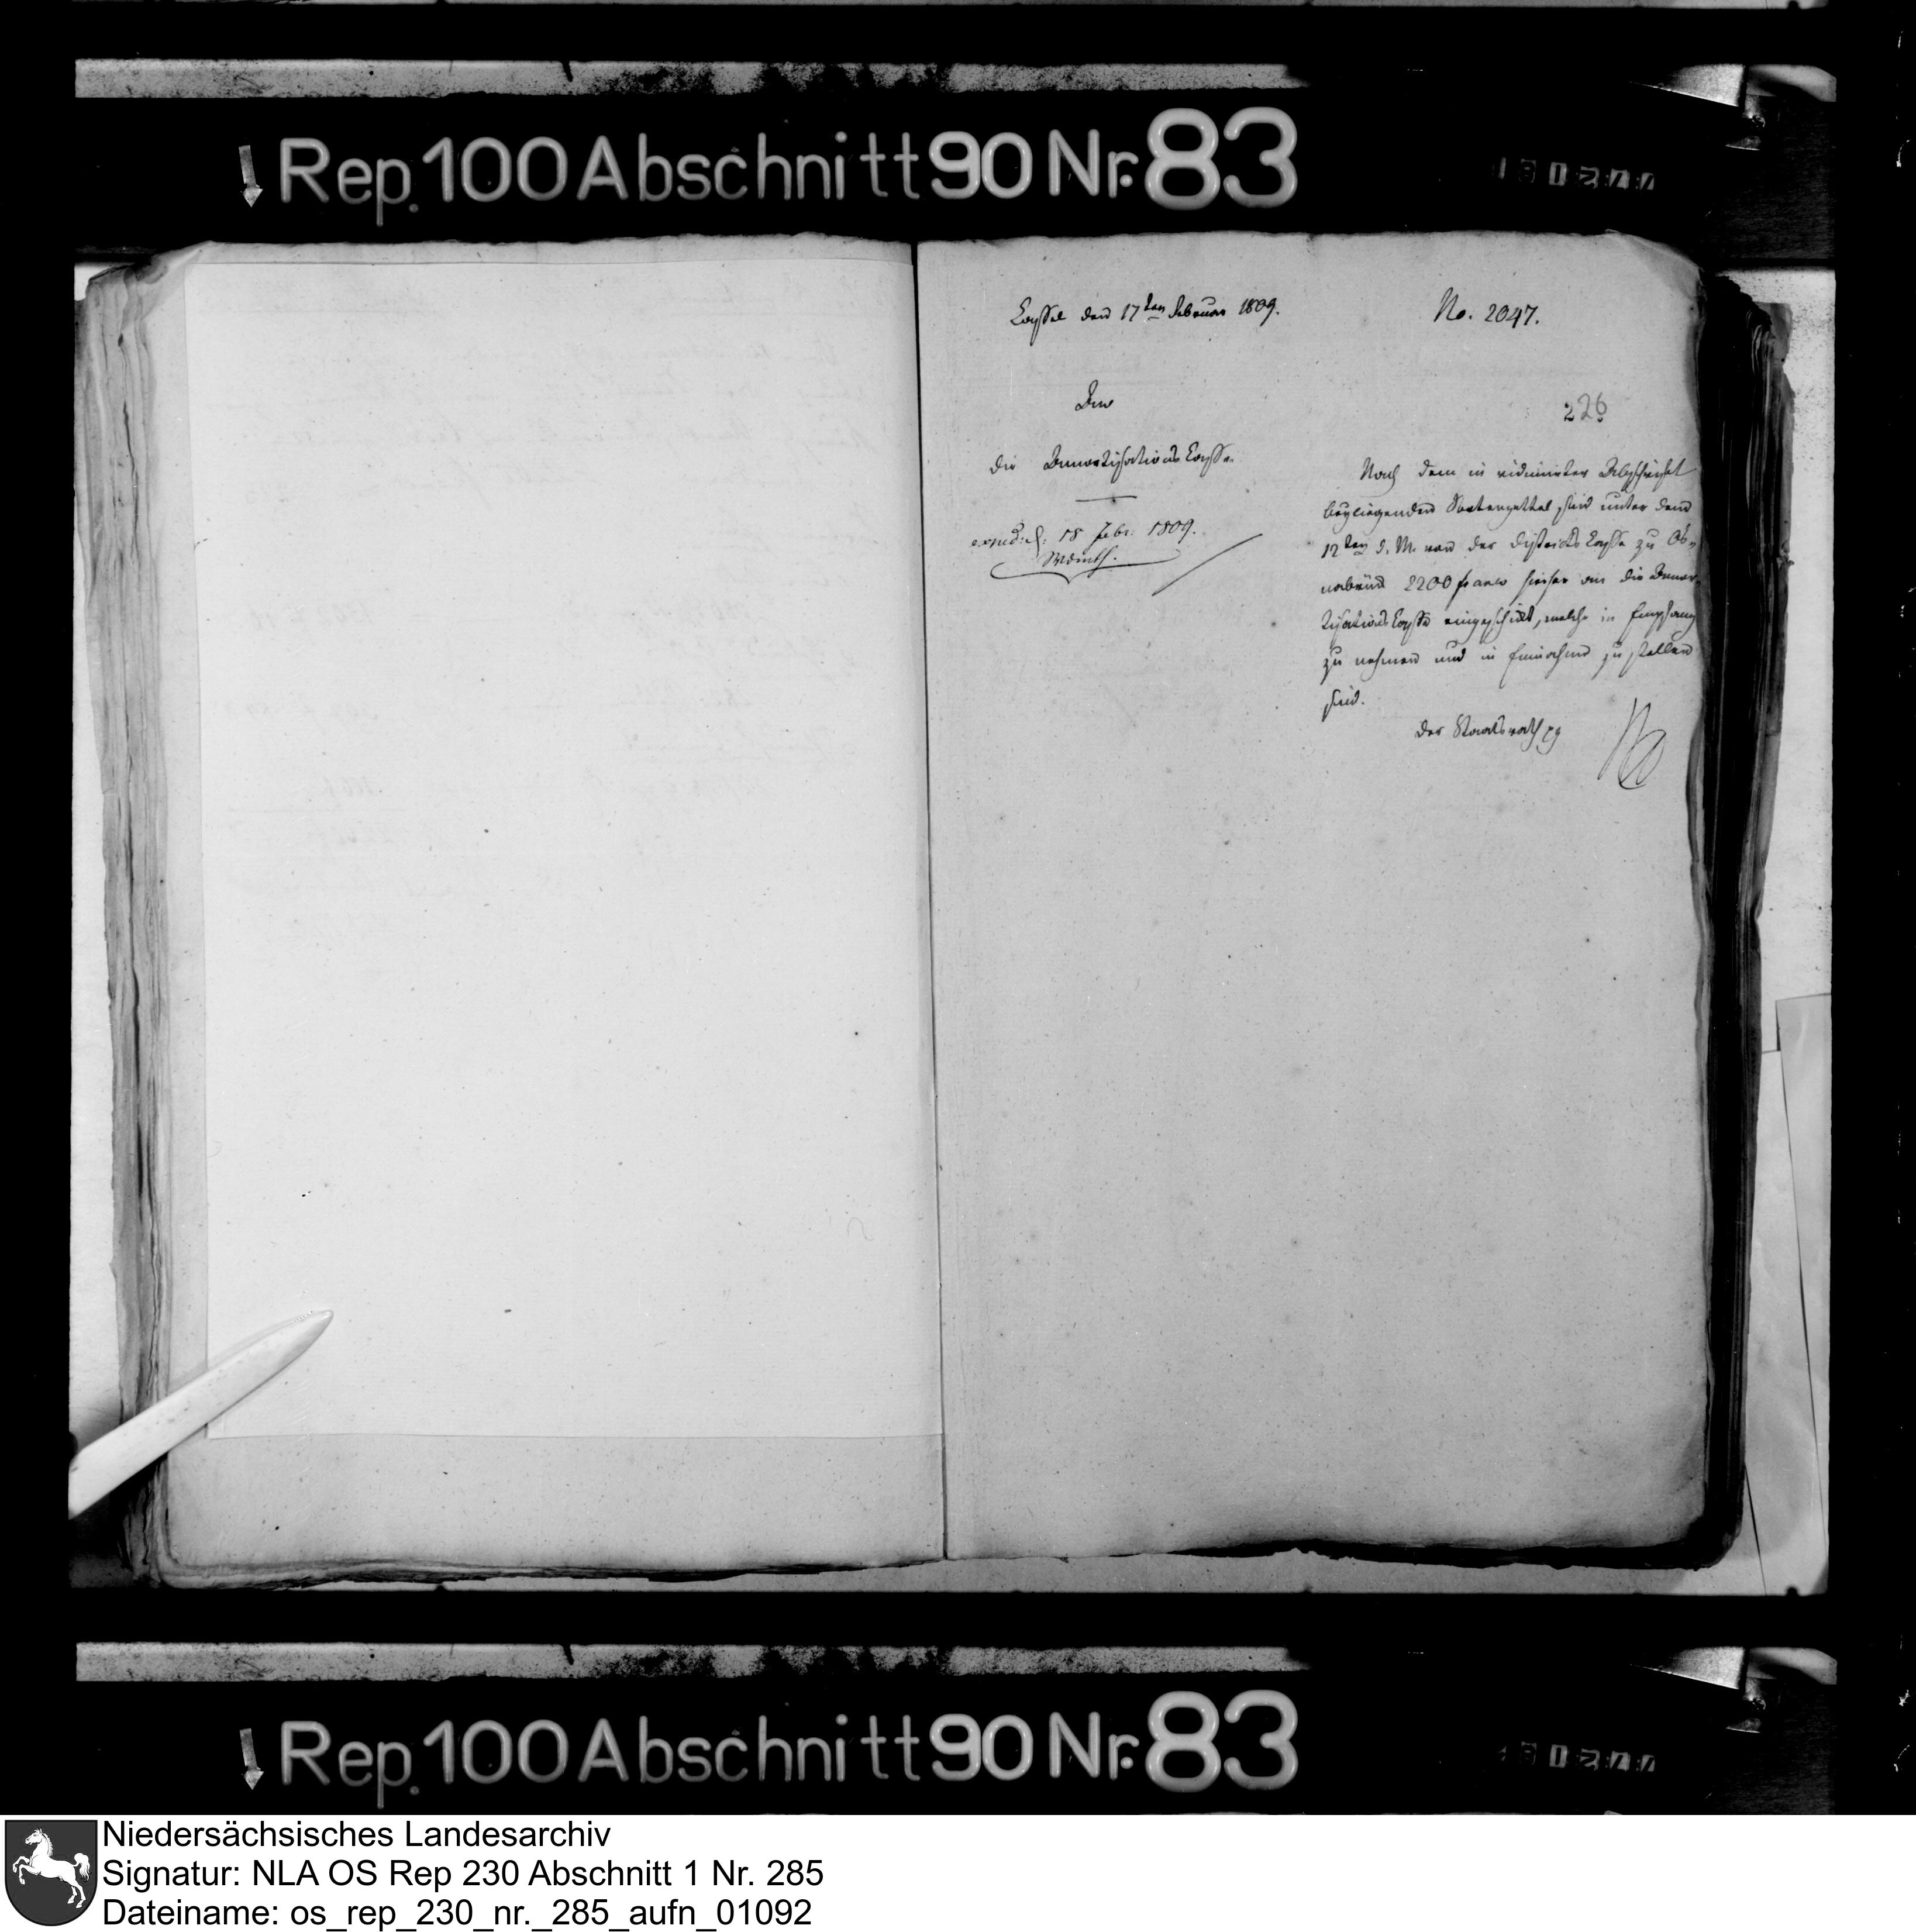 Rep. 100 Abschnitt 90 Nr. 83
Cassel den 17ten Februar 1809.
No. 2047.
An
die Amortisations Casse.
226
exped: d. 18 Febr. 1809.
Nach dem in vidimirter Abschrift
beyliegenden Sortenzettel sind unter dem
12ten d. M. von der Districts Casse zu Os-
nabrück 2200 francs hieher an die Amor-
tisations Casse eingeschickt, welche in Empfang
zu nehmen und in Einnahme zu stellen
sind.
Der Staatsrath
Rep. 100 Abschnitt 90 Nr. 83
Niedersächsisches Landesarchiv
Signatur: NLA OS Rep 230 Abschnitt 1 Nr. 285
Dateiname: os_rep_230_nr._285_aufn_01092